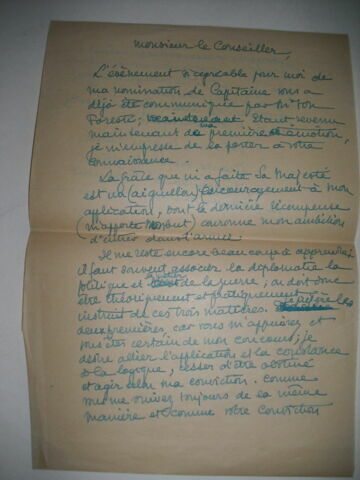 Monsieur le Conseiller,
L'évènement si agréable pour moi de
ma nomination de Capitaine vous a
déjà été communiqué par
maintenant Etant revenu
maintenant de ma première émotion,
je m'empresse de la porter à votre
connaissance.
La grâce que m'a faite Sa Majesté
est un (aiguillon) encouragement à mon
application, dont la dernière récompense
(m'apporte) couronne mon ambition
d'entrer dans l'armée.
Il me reste encore beaucoup à apprendre,
il faut souvent associer la diplomatie la
politique et de la guerre, on doit donc
être théoriquement et pratiquement
instruit de ces trois matières.
deux premières, car vous m'appuyez et
vous êtes certain de mon concours; je
désire allier l'application et la constance
à la logique, cesser d'être obstiné
et agir selon ma conviction. Comme
vous me suivez toujours de la même
manière et comme votre conviction